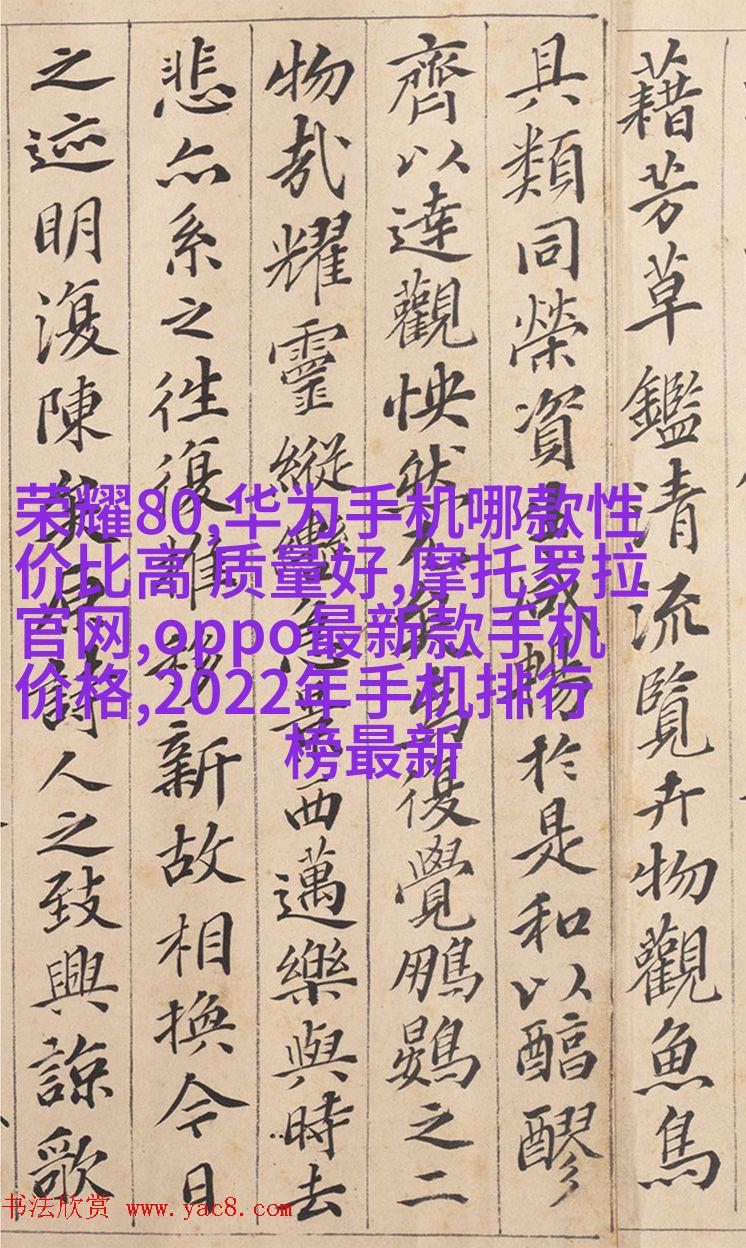 藉芳草鑑清流覽卉物觀魚鳥
具類同榮資生咸暢於是和以醇醪
齊以達觀怏然兀矣焉復覺鵬鷃之二
物哉耀靈縱轡急景西邁樂與時去
悲亦系之往復推移新故相換今日
之迹明復陳矣原詩人之致興諒歌
荣耀80,华为手机哪款性
价比高 质量好,摩托罗拉
官网,oppo最新款手机
价格,2022年手机排行
榜最新
书法欣赏 www.yac8.com